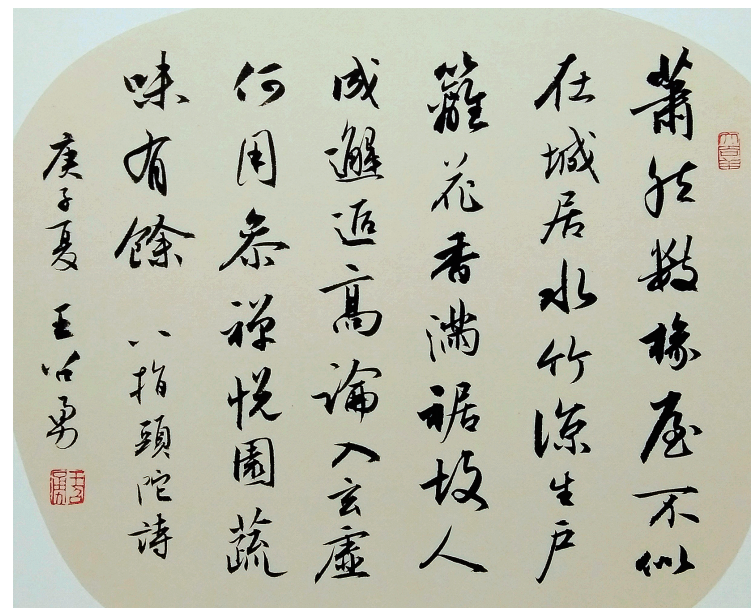 蕭然數椽屋不似
在城居水竹涼生戶
籬花香滿裾故人
成邂逅高論入玄虛
何用參禪悅園蔬
味有餘 八指頭陀詩
庚子夏 王召勇